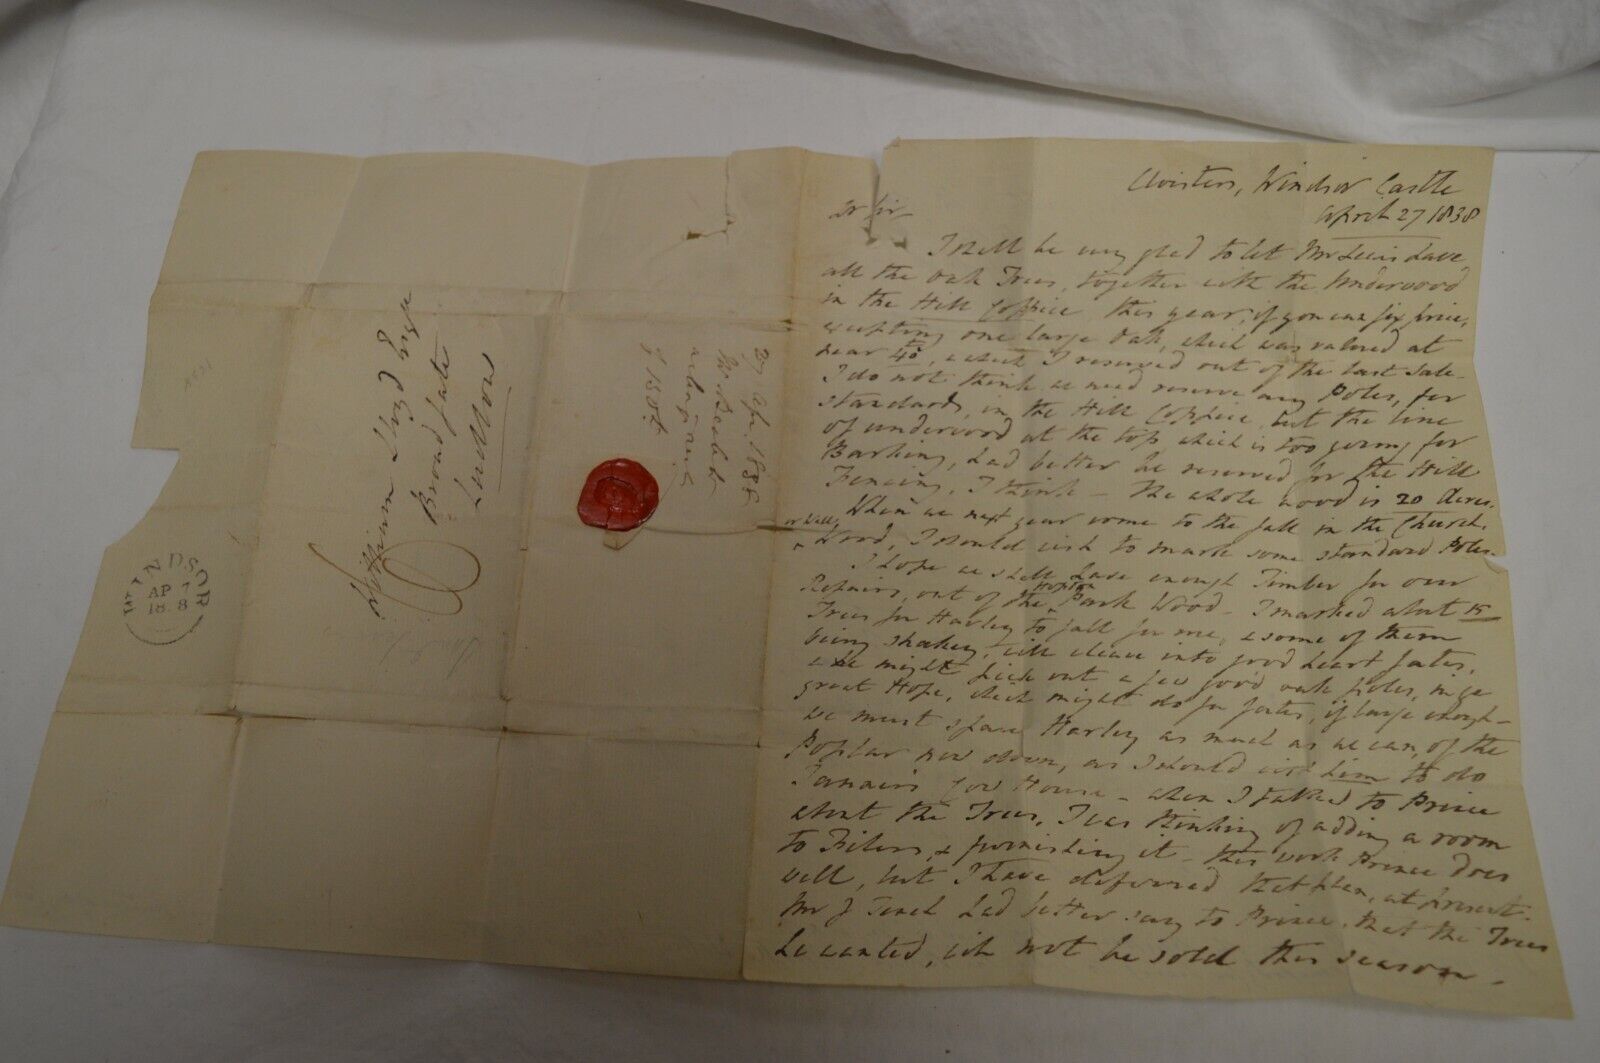 Cloisters, Windsor Castle
April 27 1838
Dr Sir
I shall be very glad to let Mr Lewis have
all the Oak Trees, together with the Underwood
in the Hill Coppice this year, if you can fix price,
excepting one large Oak, which was valued at
near 40£, which I reserved out of the last sale -
I do not think we need reserve any Poles, for
standards, in the Hill Coppice, but the line
of underwood at the top which is too young for
Barking, had better be reserved for the Hill
Fencing, I think - The whole wood is 20 Acres.
When we next year come to the fall in the Church,
or Well,
Wood, I should wish to mark some standard Poles.
I hope we shall have enough Timber for our
Repairs, out of the Hopton Park Wood - I marked about 15
Trees for Harley to fall for me, & some of them
being shakey, will cleave into good heart gates,
& he might pick out a few good oak poles, in ye
great Hope, which might do for gates, if large enough -
We must spare Harley as much as we can, of the
Poplar now down, as I should wish him to do
Cow House - when I talked to Prince
about the Trees, I was thinking of adding a room
to & furnishing it - this work Prince does
well, but I have deferred that plan, at present.
Mr J had better say to Prince, that the Trees
he wanted, will not be sold this season.
27 Apr. 1838
William Lloyd Esqr
Broad Gate
Ludlow
WINDSOR
AP 7
18 8